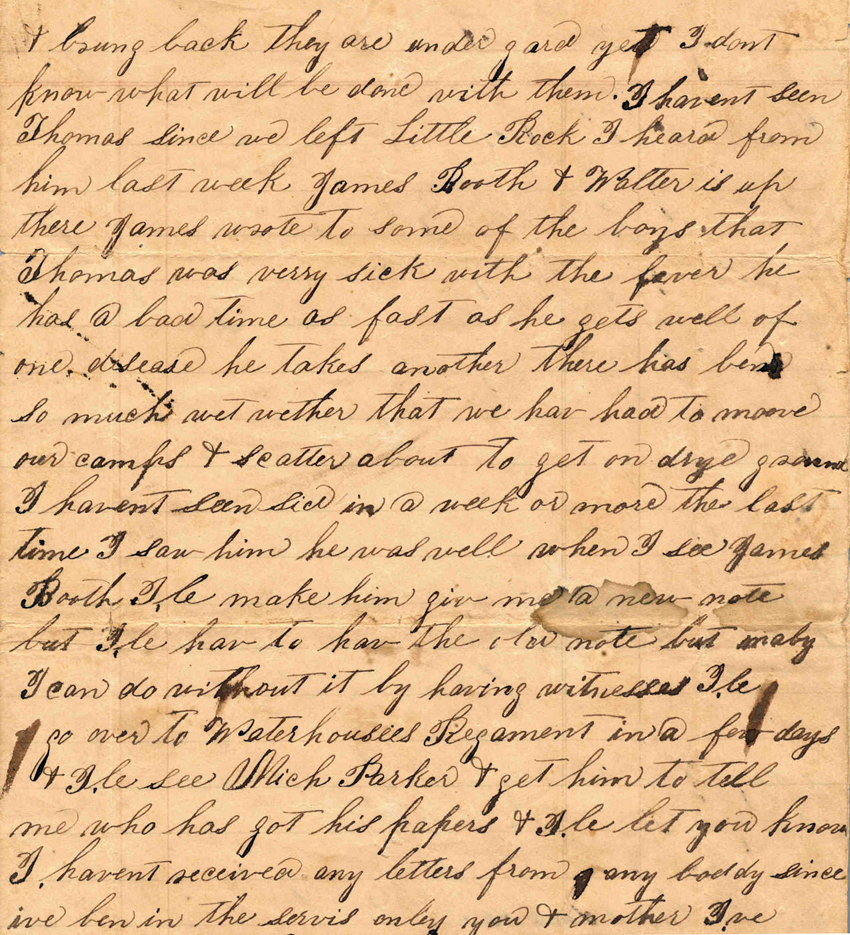 & brung back they are under gard yet I dont
know what will be done with them. I havent seen
Thomas since we left Little Rock I heard from
him last week James Booth & Walter is up
there James wrote to some of the boys that
Thomas was verry sick with the fever he
has a bad time as fast as he gets well of
one disease he takes another there has ben
so much wet wether that we hav had to moove
our camps & scatter about to get on drye ground
I havent seen sid in a week or more the last
time I saw him he was well when I see James
Booth I,le make him giv me a new note
but I,le hav to hav the old note but maby
I can do without it by having witnesses I,le
go over to Waterhousees Regament in a few days
& I,le see Mich Parker & get him to tell
me who has got his papers & I,le let you know
I havent received any letters from any boddy since
ive ben in the servis onley you & mother I,ve